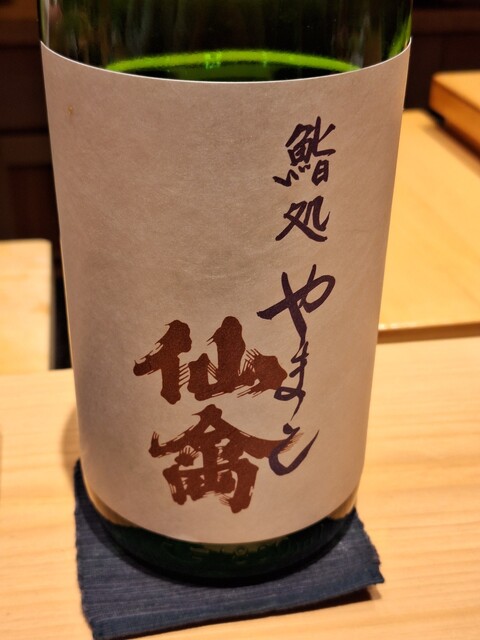 鮨処 やまと
仙禽